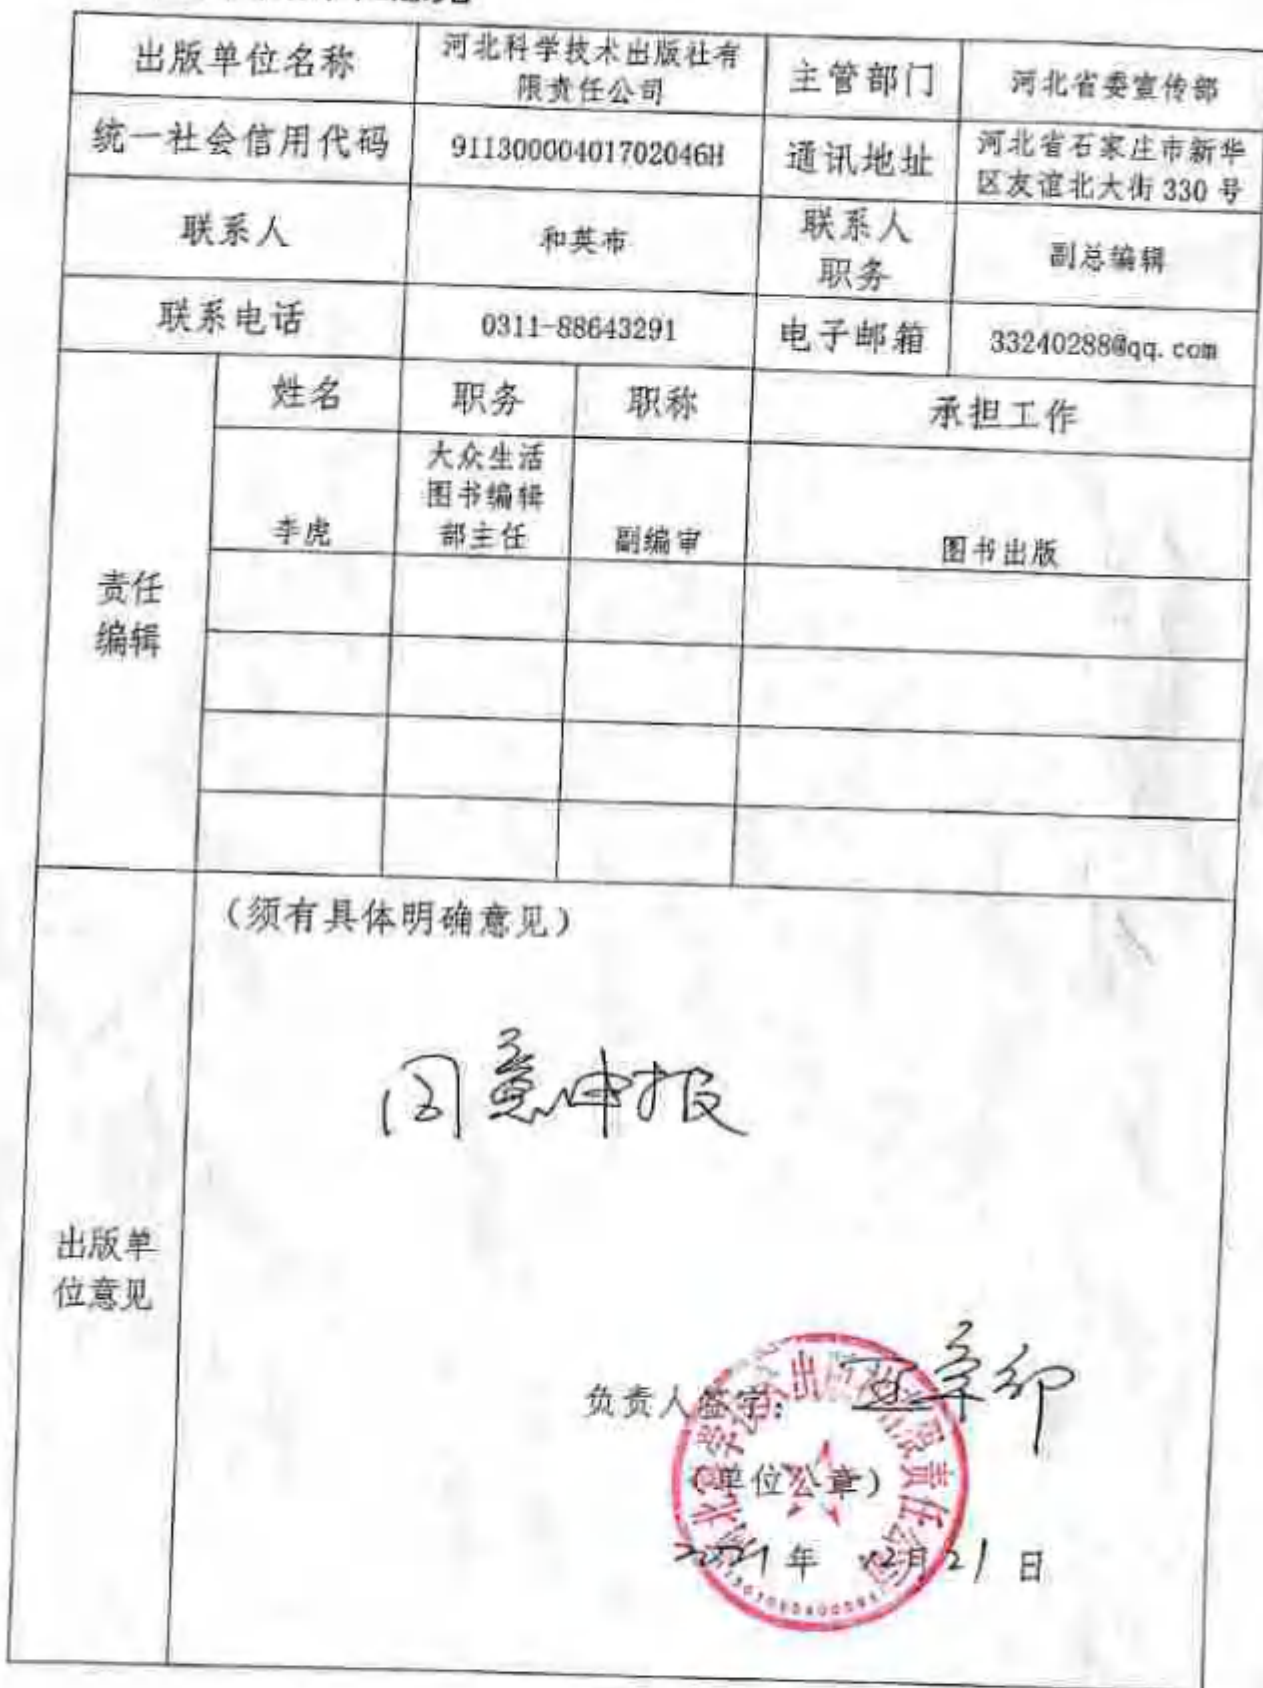 出版单位名称
河北科学技术出版社有
限责任公司
主管部门
河北省委宣传部
统一社会信用代码
91130000401702046H
通讯地址
河北省石家庄市新华
区友谊北大街 330 号
联系人
和英布
联系人
职务
副总编辑
联系电话
0311-88643291
电子邮箱
33240288@qq.com
责任
编辑
姓名
职务
职称
承担工作
李虎
大众生活
图书编辑
部主任
副编审
图书出版
出版单
位意见
（须有具体明确意见）
同意申报
负责人签字：
（单位公章）
年 12月21日